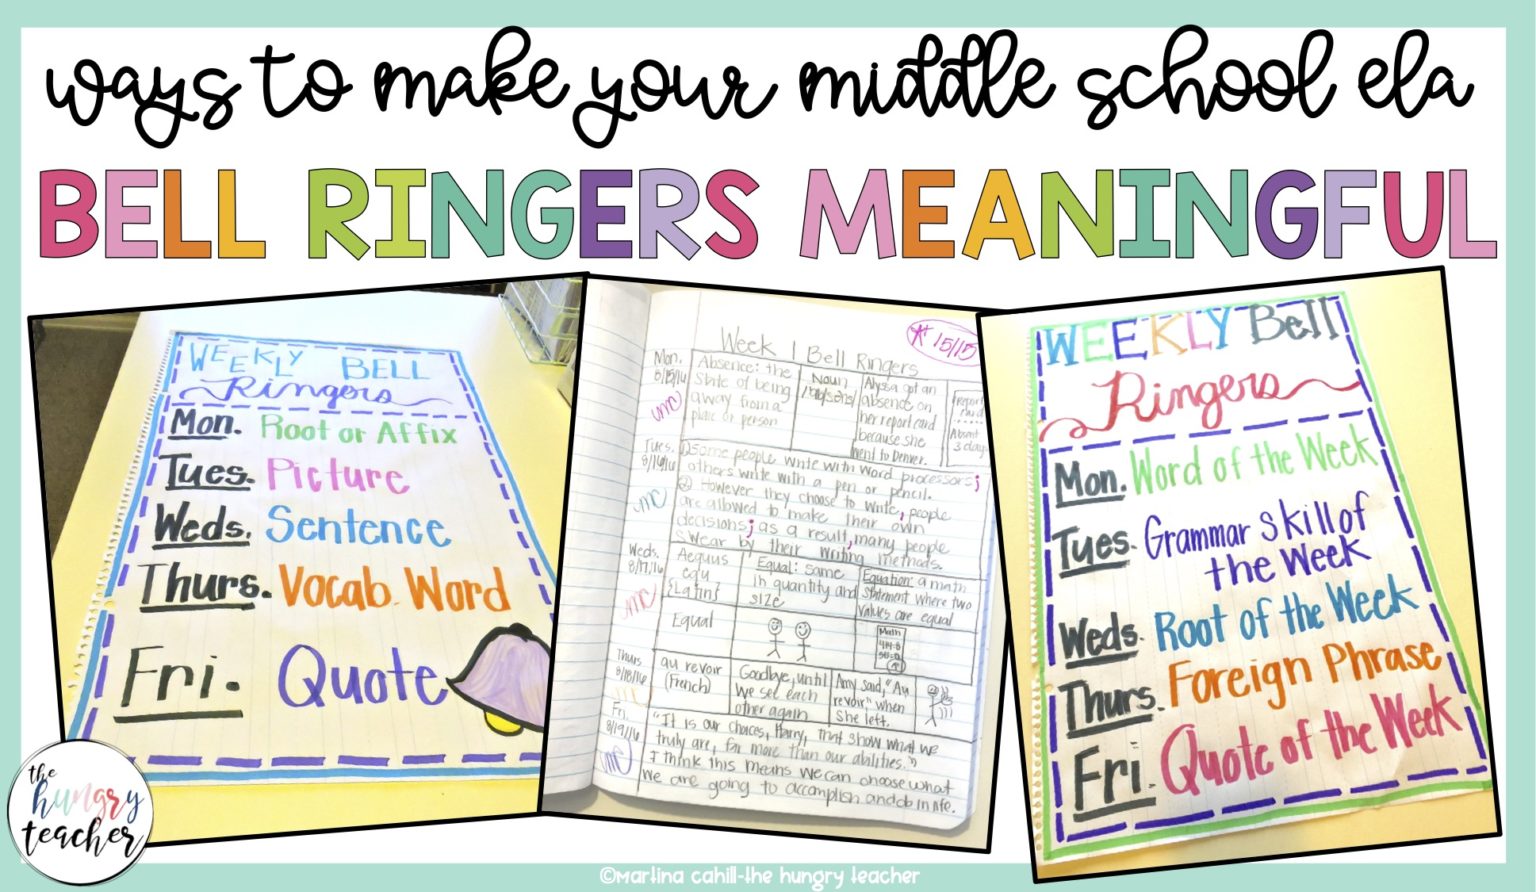 ways to make your middle school ela
BELL RINGERS MEANINGFUL
WEEKLY BELL
Ringers
Mon. Root or Affix
Tues. Picture
Weds. Sentence
Thurs. Vocab. Word
Fri. Quote
15/15
Week 1 Bell Ringers
Mon.
8/15/16
Absence: the
state of being
away from a
place or person
Noun
Alyssa got an
absence on
her report card
because she
went to Denver.
report
card
Absent
3 days
Tues.
8/16/16
① Some people write with word processors;
others write with a pen or pencil.
② However they choose to write, people
are allowed to make their own
decisions; as a result, many people
swear by their writing methods.
Weds.
8/17/16
Aequus
equ
{Latin}
Equal: same
in quantity and
size
Equation: a math
statement where two
values are equal
Equal
Math
Thurs.
8/18/16
au revoir
(French)
Goodbye, until
we see each
other again
Amy said, "Au
revoir" when
she left.
Fri.
8/19/16
"It is our choices, Harry, that show what we
truly are, far more than our abilities."
I think this means we can choose what
we are going to accomplish and do in life.
WEEKLY Bell
Ringers
Mon. Word of the Week
Tues. Grammar Skill of
the Week
Weds. Root of the Week
Thurs. Foreign Phrase
Fri. Quote of the Week
the
hungry
teacher
©Martina Cahill-the hungry teacher